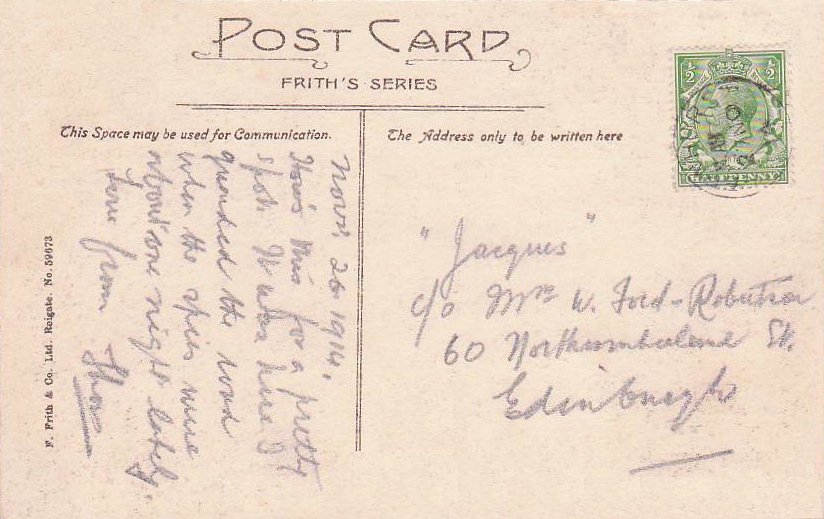 POST CARD
FRITH'S SERIES
This Space may be used for Communication.
The Address only to be written here
½ ½
HALFPENNY
Nov. 26 1914.
How's this for a pretty
spot. It was here I
guarded the road
when the spies were
about one night lately.
Love from
"Jacques"
c/o Mrs W. Ford-Robertson
60 Northumberland St.
Edinburgh
F. Frith & Co. Ltd. Reigate. No. 59673